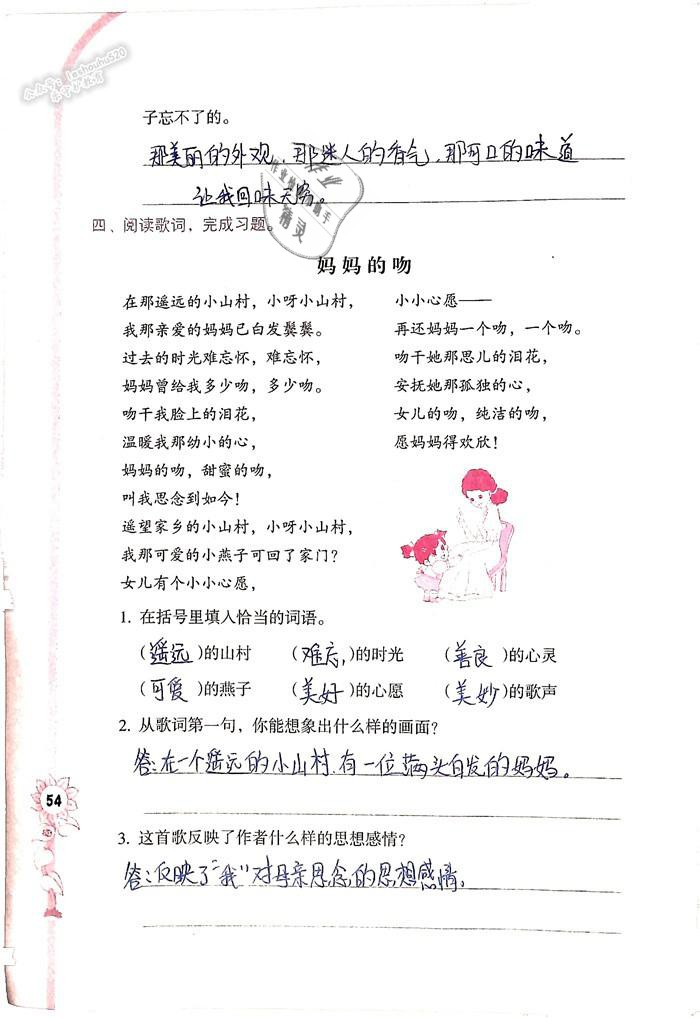 公众号: leshouhu520
乐守护教育
子忘不了的。
那美丽的外观、那迷人的香气、那可口的味道
让我回味无穷。
作业
精灵
四、阅读歌词，完成习题。
妈妈的吻
在那遥远的小山村，小呀小山村，
我那亲爱的妈妈已白发鬓鬓。
过去的时光难忘怀，难忘怀，
妈妈曾给我多少吻，多少吻。
吻干我脸上的泪花，
温暖我那幼小的心，
妈妈的吻，甜蜜的吻，
叫我思念到如今！
遥望家乡的小山村，小呀小山村，
我那可爱的小燕子可回了家门？
女儿有个小小心愿，
小小心愿——
再还妈妈一个吻，一个吻。
吻干她那思儿的泪花，
安抚她那孤独的心，
女儿的吻，纯洁的吻，
愿妈妈得欢欣！
1. 在括号里填入恰当的词语。
（遥远）的山村 （难忘）的时光 （善良）的心灵
（可爱）的燕子 （美好）的心愿 （美妙）的歌声
2. 从歌词第一句，你能想象出什么样的画面？
答：在一个遥远的小山村，有一位满头白发的妈妈。
54
3. 这首歌反映了作者什么样的思想感情？
答：反映了“我”对母亲思念的思想感情。